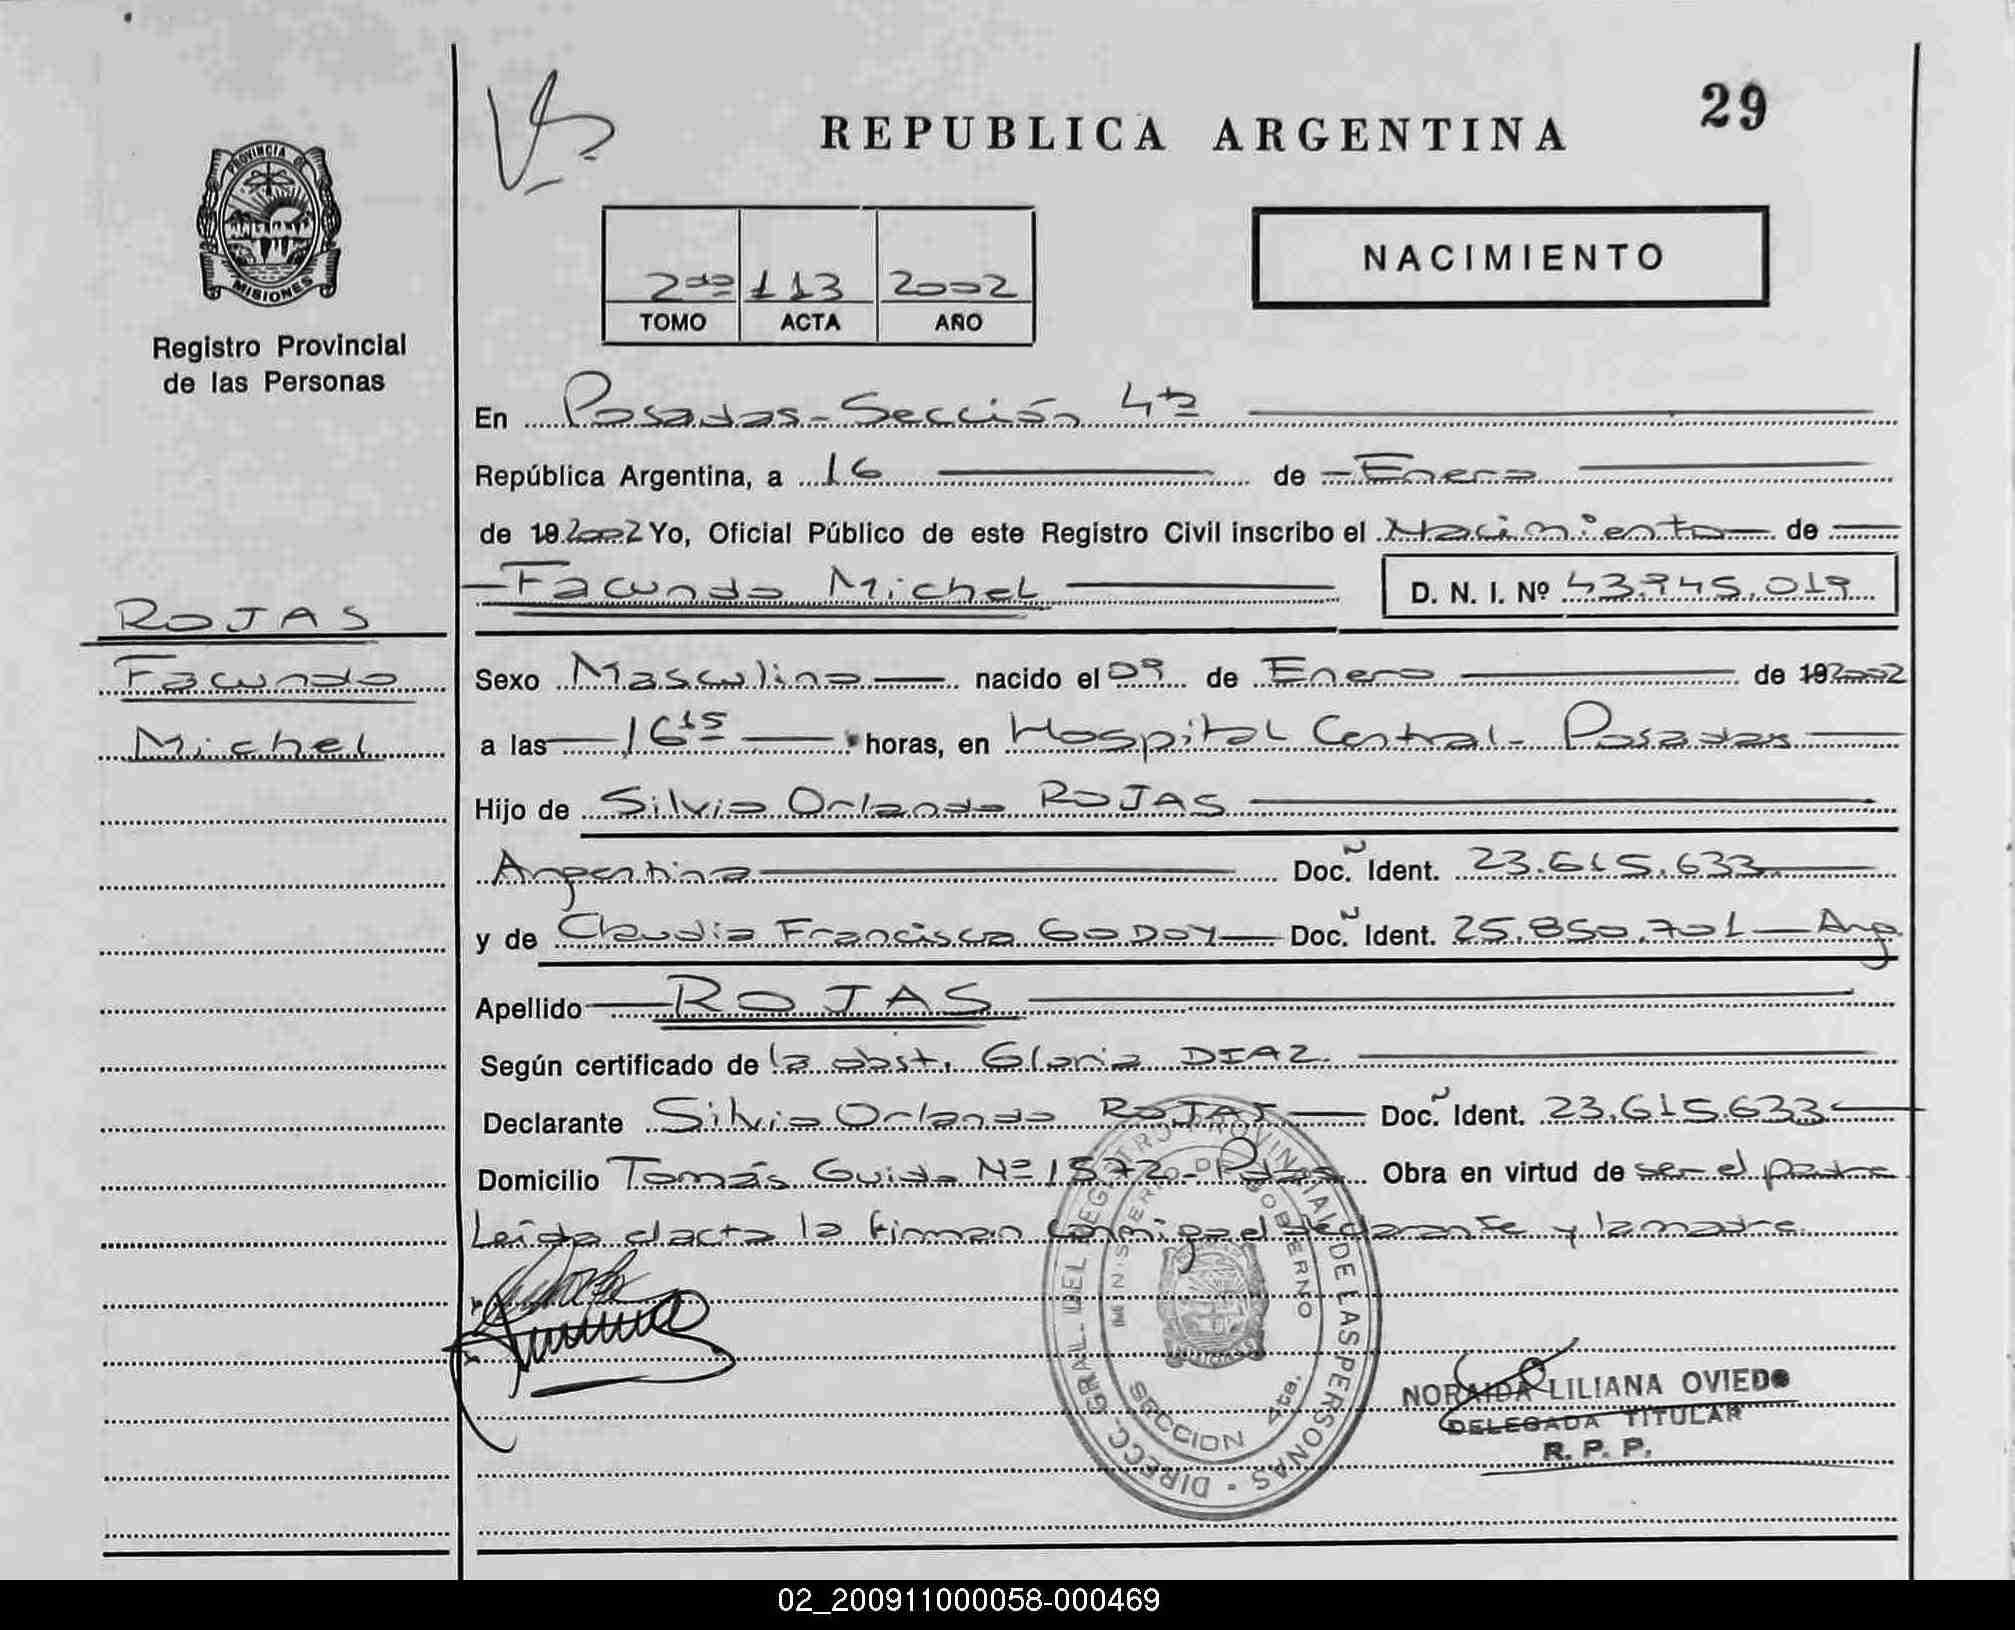 29
REPUBLICA ARGENTINA
PROVINCIA DE
MISIONES
Registro Provincial
de las Personas
NACIMIENTO
2do 113 2002
TOMO ACTA AÑO
En Posadas - Sección 4ta
República Argentina, a 16 de Enero
de 19 2002 Yo, Oficial Público de este Registro Civil inscribo el Nacimiento de
Facundo Michel D. N. I. Nº 43.945.019
ROJAS
Facundo
Michel
Sexo Masculino nacido el 09 de Enero de 19 2002
a las 16 15 horas, en Hospital Central - Posadas
Hijo de Silvio Orlando ROJAS
Argentino Doc. Ident. 23.615.633
y de Claudia Francisca GODOY Doc. Ident. 25.850.701 - Arg.
Apellido ROJAS
Según certificado de la obst. Gloria DIAZ.
Declarante Silvio Orlando ROJAS Doc. Ident. 23.615.633
Domicilio Tomás Guido Nº 1572 - Pdas Obra en virtud de ser el padre
Leída el acta la firman conmigo el declarante y la madre.
DIRECC. GRAL. DEL REGISTRO PROVINCIAL DE LAS PERSONAS
MINISTERIO DE GOBIERNO
SECCION 4ta.
NORAIDA LILIANA OVIEDO
DELEGADA TITULAR
R. P. P.
02_200911000058-000469